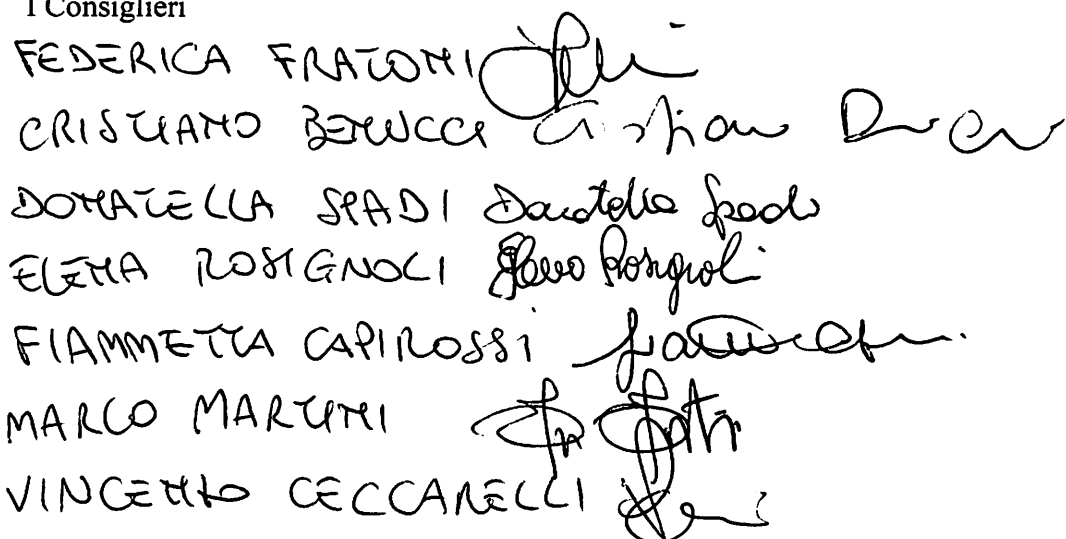 I Consiglieri
FEDERICA FRATONI
CRISTIANO BENUCCI Cristiano
DONATELLA SPADI Donatella Spadi
ELENA ROSIGNOLI Elena Rosignoli
FIAMMETTA CAPIROSSI
MARCO MARTINI
VINCENZO CECCARELLI